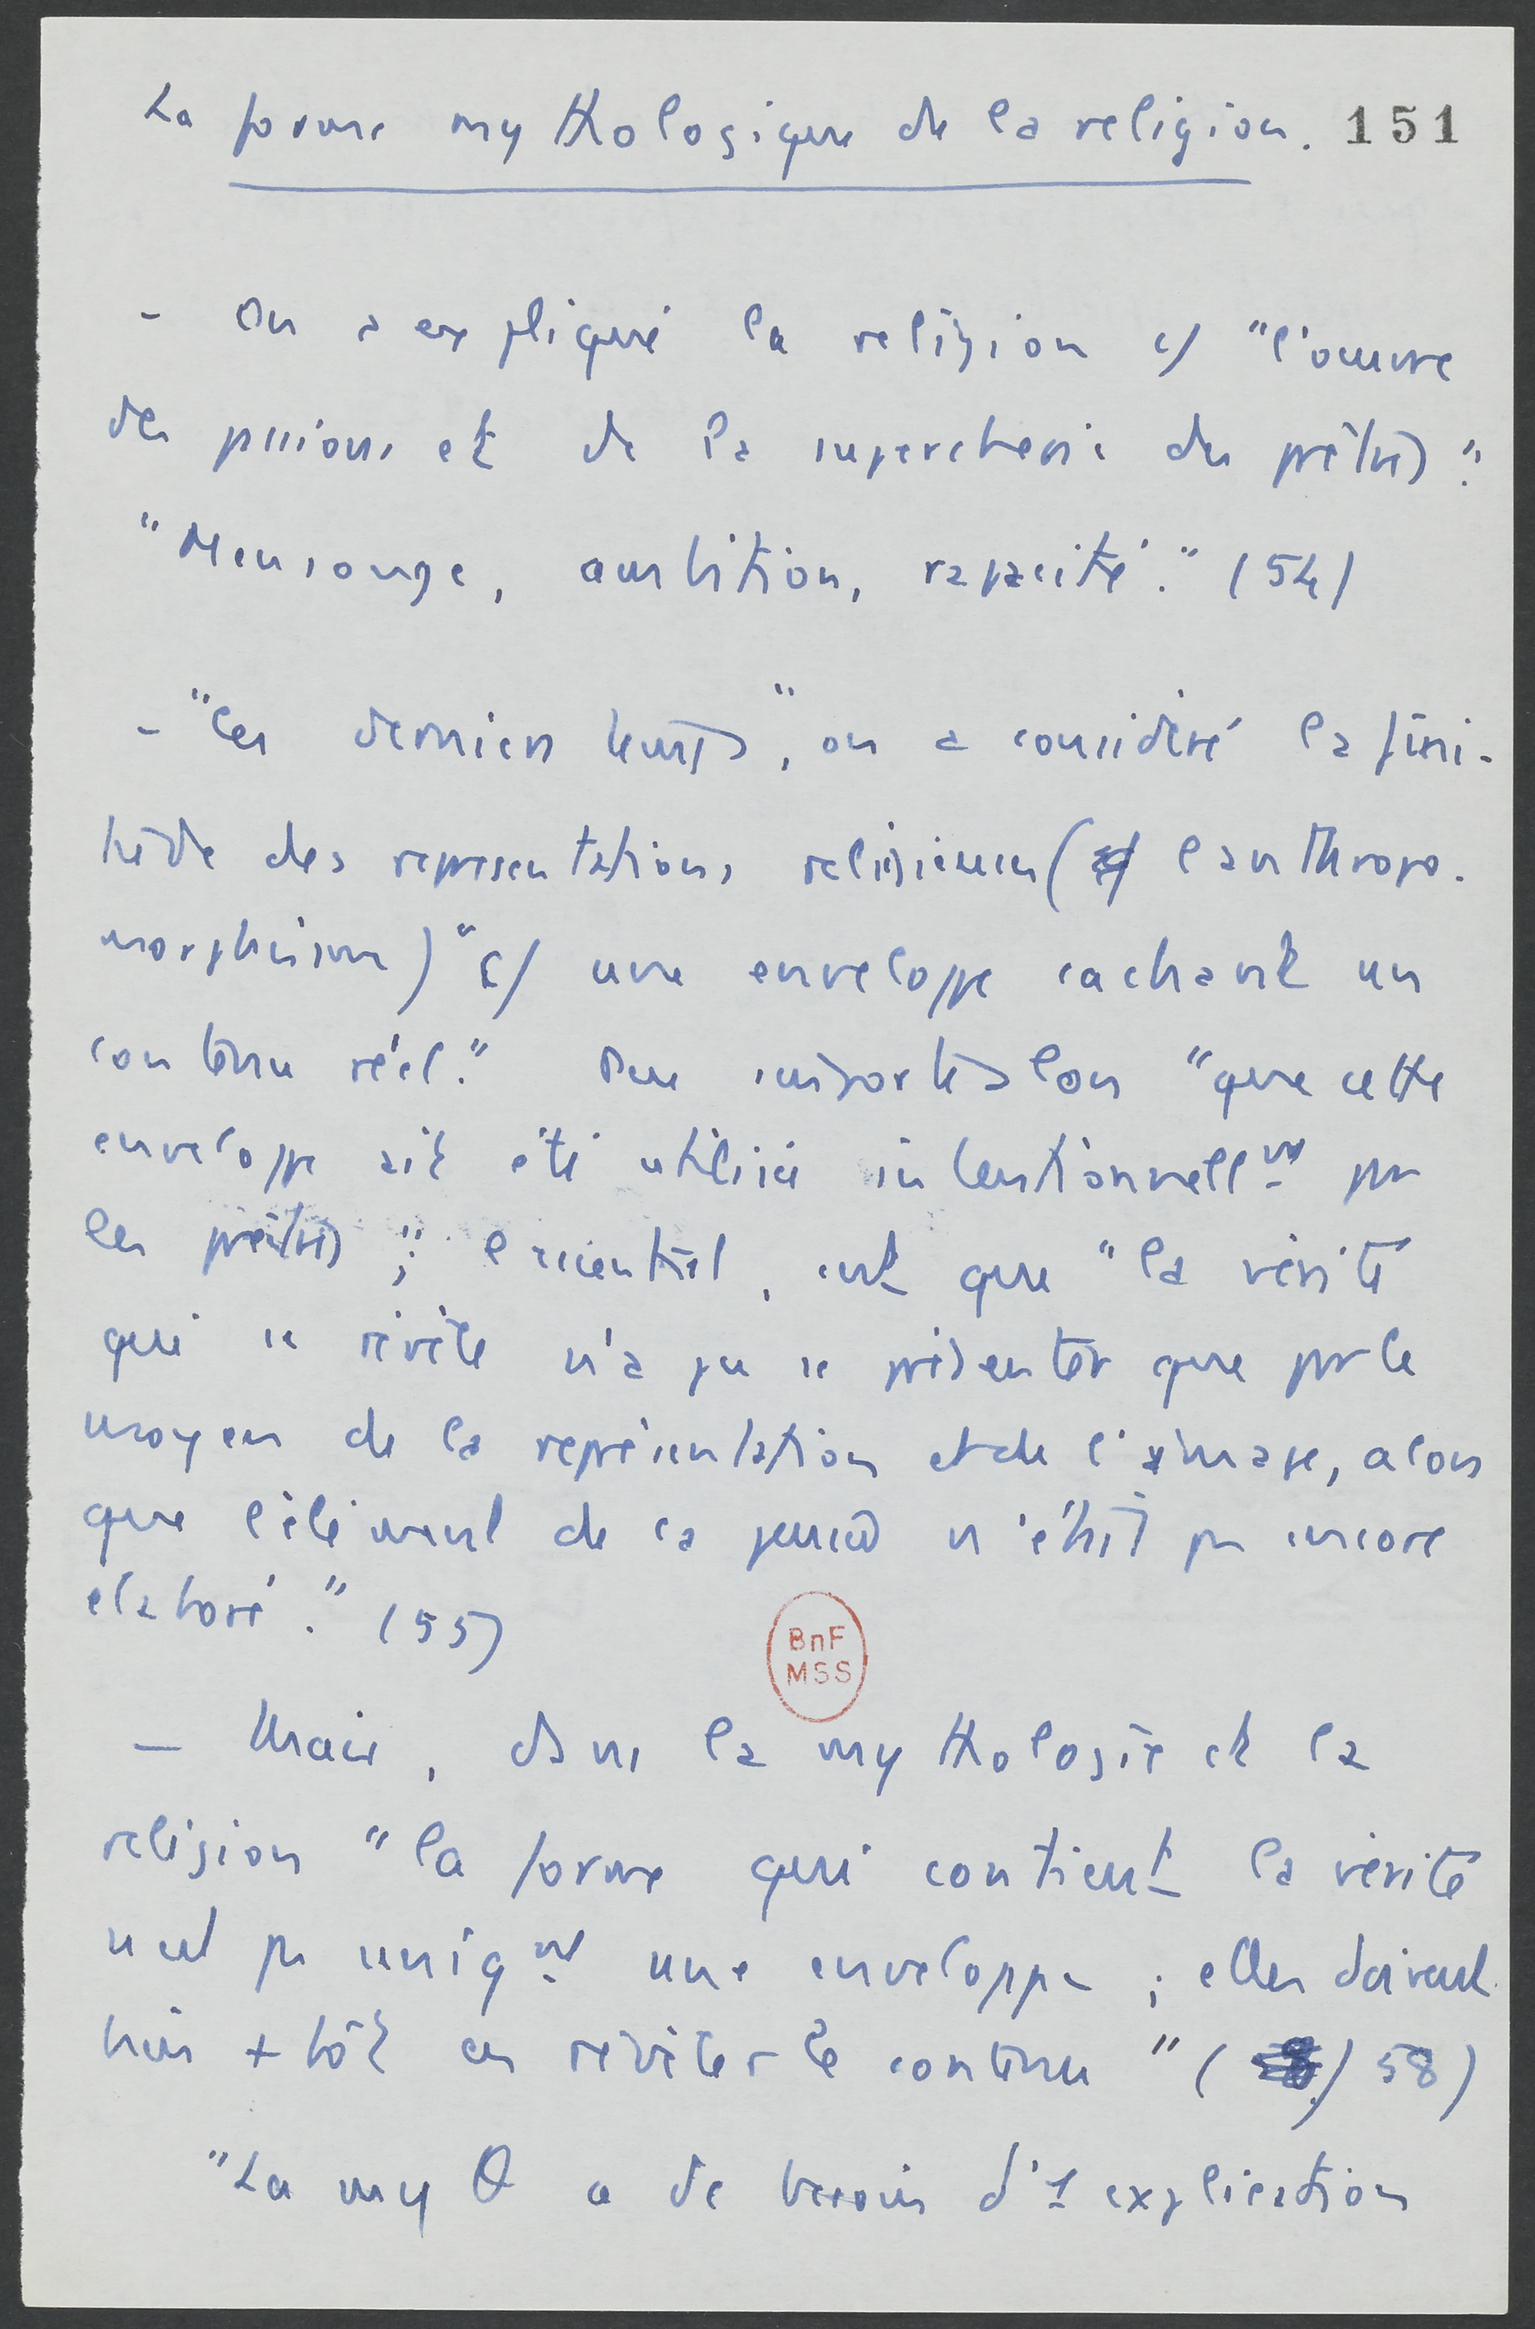 La forme mythologique de la religion. 151
- On a expliqué la religion c/ "l'œuvre
des passions et de la supercherie des prêtres".
"Mensonge, ambition, rapacité." (54)
- "Ces derniers temps", on a considéré la fini-
tude des représentations religieuses (l'anthropo-
morphisme) "c/ une enveloppe cachant un
contenu réel." Peu importe alors "que cette
enveloppe ait été utilisée intentionnellt par
les prêtres"; l'essentiel, c'est que "la vérité
qui se révèle n'a pu se présenter que par le
moyen de la représentation et de l'image, alors
que l'élément de la pensée n'était pas encore
élaboré." (55)
BnF
MSS
- Mais, dans la mythologie et la
religion "la forme qui contient la vérité
n'est pas uniqt une enveloppe ; elles doivent
bien + tôt en révéler le contenu" (58)
"La myθ a de besoin d'1 explication